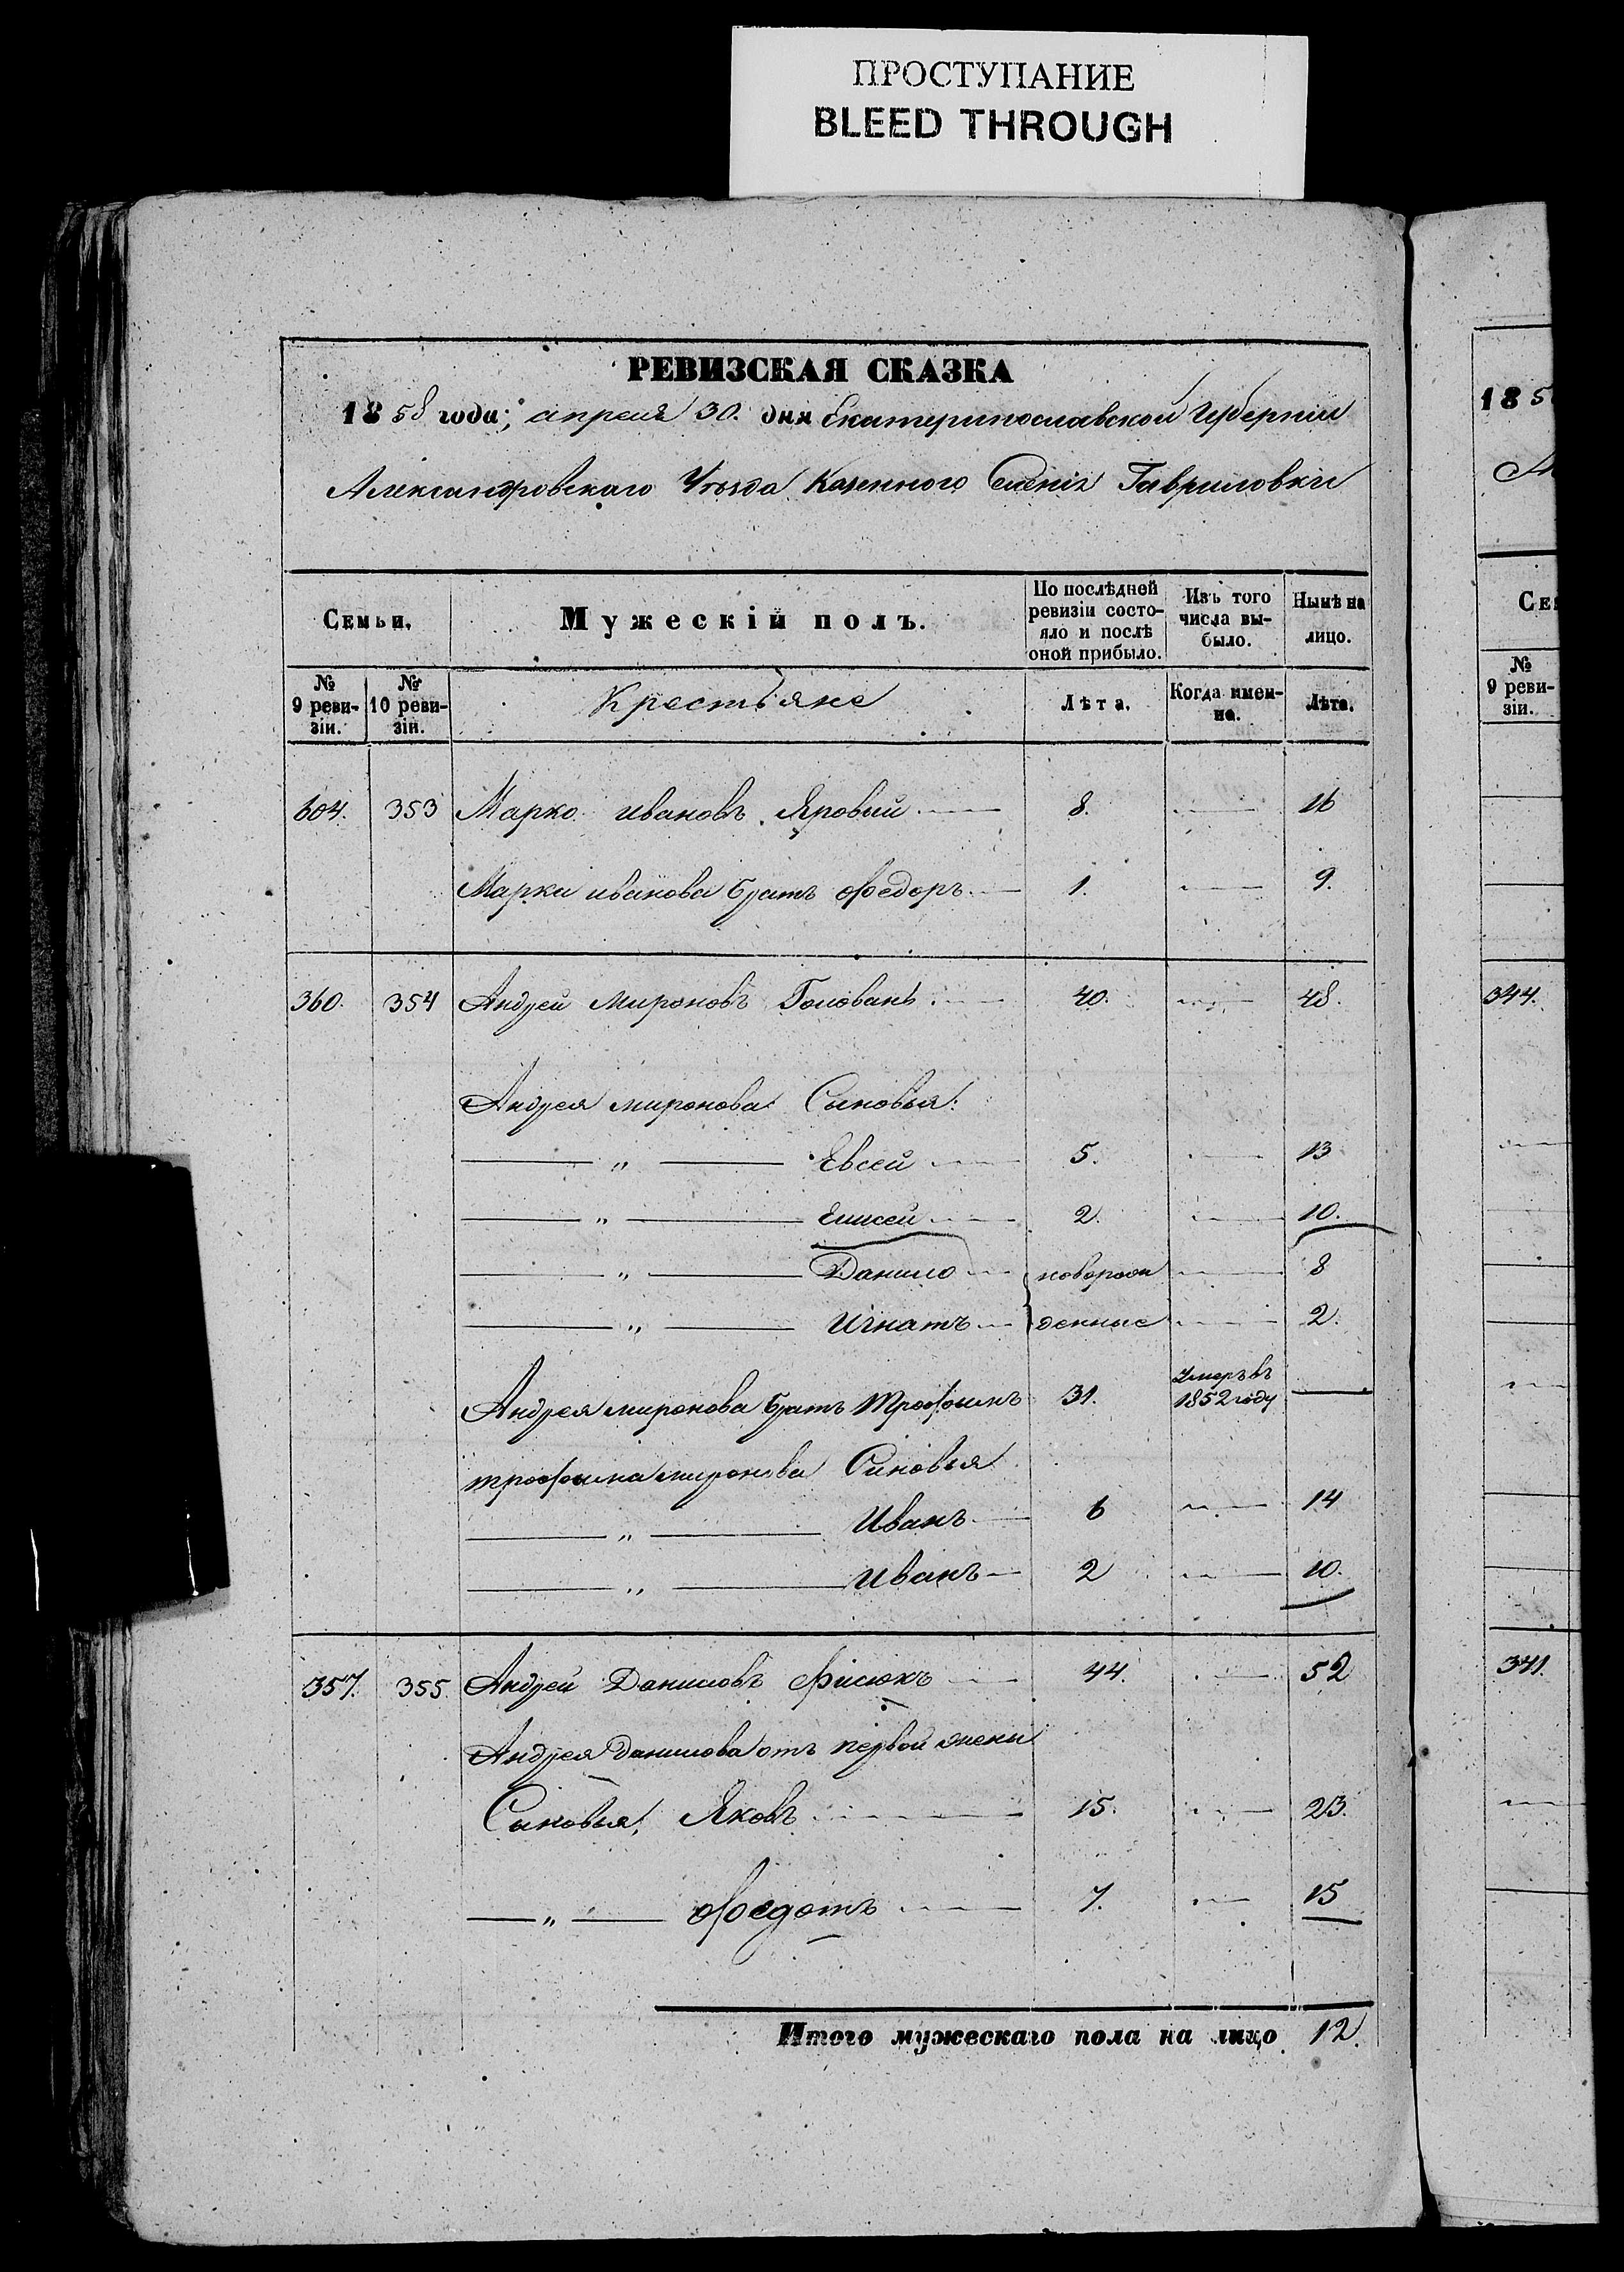 ПРОСТУПАНИЕ
BLEED THROUGH
РЕВИЗСКАЯ СКАЗКА
1858 года; апреля 30. дня Екатеринославской Губернiи
Александровскаго Уѣзда Казенного Селенiя Гавриловки
Семьи.
Мужескiй полъ.
По послѣдней ревизiи состо-
яло и послѣ
оной прибыло.
Изъ того
числа вы-
было.
Нынѣ на
лицо.
№
9 реви-
зiи.
№
10 реви-
зiи.
Крестьяне
Лѣта.
Когда имен-
но.
Лѣта.
604. 353 Марко Ивановъ Яровый 8. 16
Марка Иванова братъ Федоръ 1. 9.
360. 354 Андрей Мироновъ Голованъ 40. 48.
Андрея Миронова Сыновья:
" Евсей 5. 13
" Елисей 2. 10.
" Данило новорож 8
" Игнатъ денные 2.
Андрея Миронова братъ Трофимъ 31. Умеръ въ
1852 году
Трофима Миронова Сыновья
" Иванъ 6 14
" Иванъ 2 10.
357. 355. Андрей Даниловъ Фисюкъ 44. 52
Андрея Данилова отъ первой жены
Сыновья: Яковъ 15. 23.
" Федотъ 7. 15
Итого мужескаго пола на лицо 12.
185
Се
№
9 реви-
зiи.
344.
341.